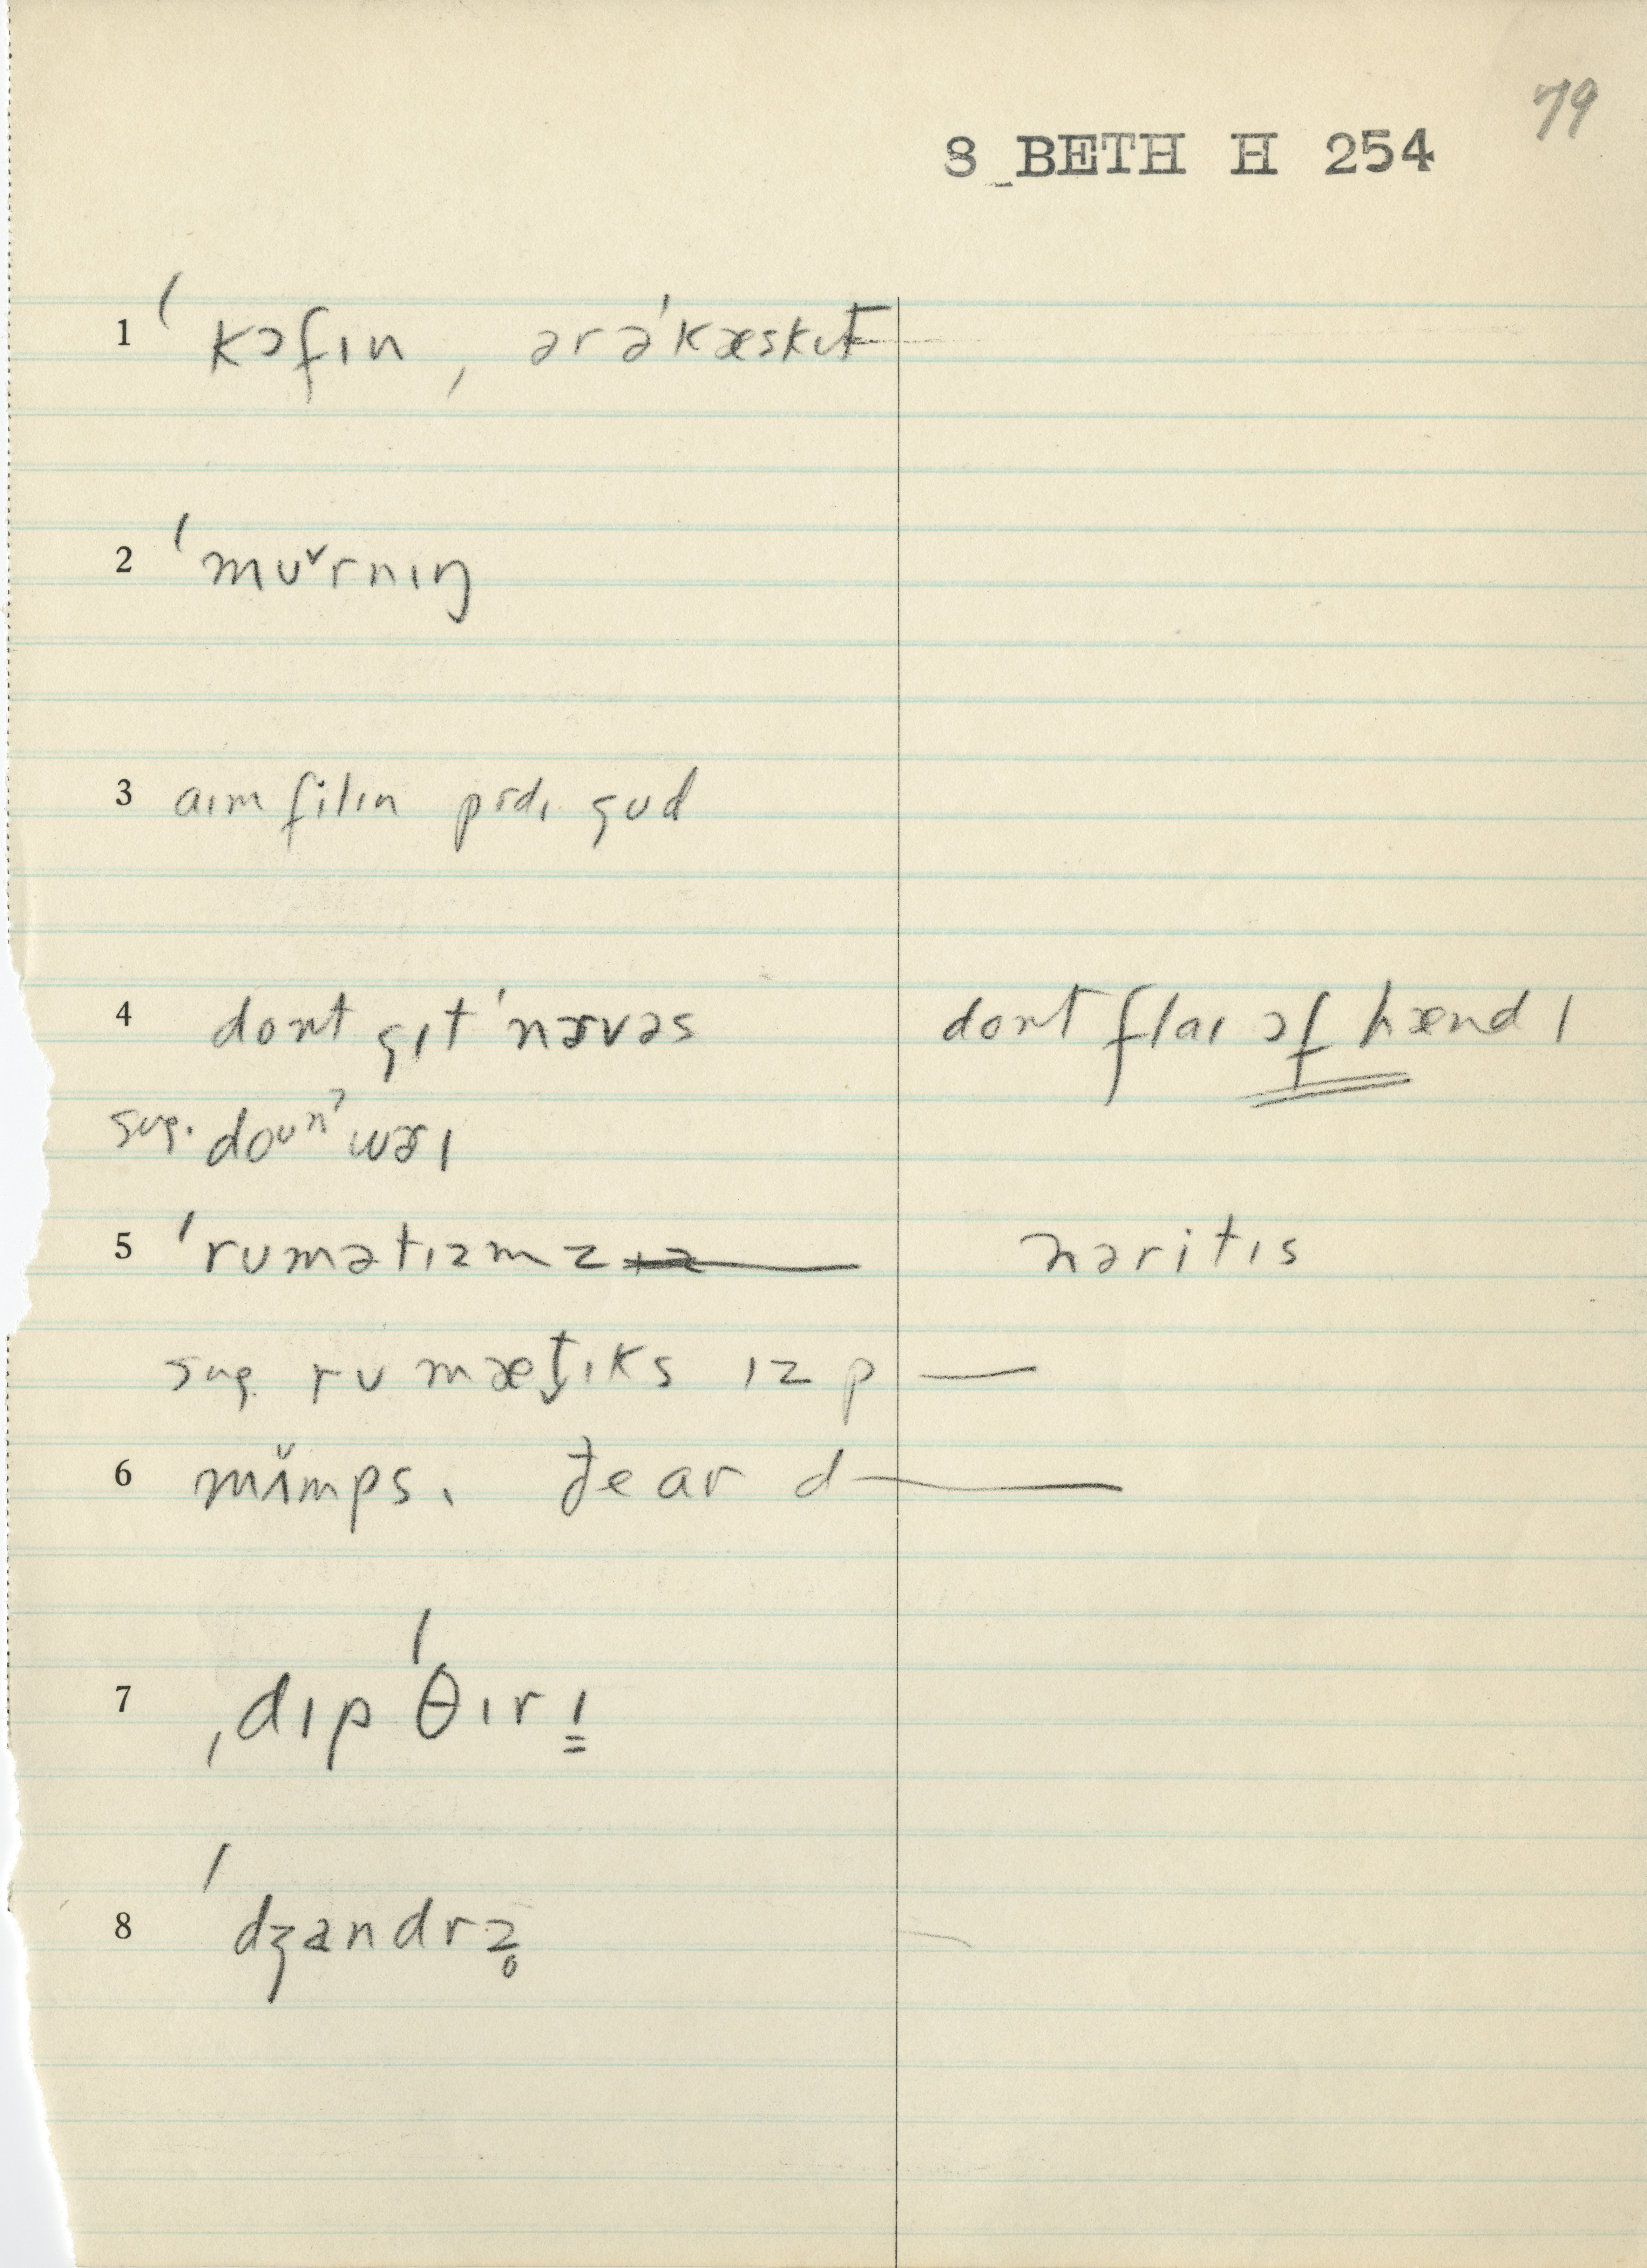 79
8 BETH H 254
1 ˈkɔfɪn, ərəˈkæskɪt
2 ˈmʊ˅rnɪŋ
3 aɪm filɪn pɪdɪ gʊd
4 dont gɪt ˈnɝvəs dont flaɪ ɔf hændl
sug. doʊnˀ wɝɪ
5 ˈrumətɪzmz nəritɪs
sug. rumæt̬ɪks ɪz p—
6 mʌ̌mps. ðe ar d—
7 ˌdɪpˈθɪrɪ
8 ˈdʒandrz̥